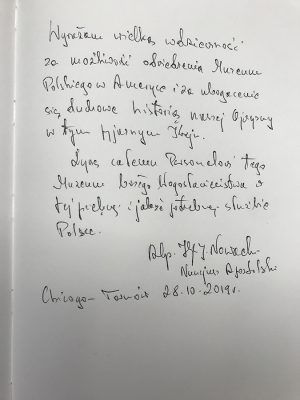 Wyrażam wielką wdzięczność
za możliwość odwiedzenia Muzeum
Polskiego w Ameryce i za ubogacenie
się duchową historią naszej Ojczyzny
w tym pięknym Kraju.
Życzę całemu Personelowi tego
Muzeum bożego błogosławieństwa w
tej pięknej i jakże potrzebnej służbie
Polsce.
Abp. Nowacki
Nuncjusz Apostolski
Chicago - Tarnów 28.10.2019 r.